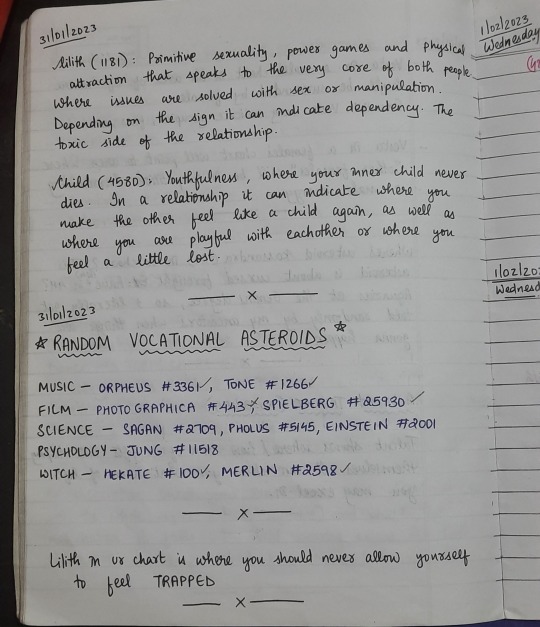 31/01/2023
Lilith (1181): Primitive sexuality, power games and physical
attraction that speaks to the very core of both people
where issues are solved with sex or manipulation.
Depending on the sign it can indicate dependency. The
toxic side of the relationship.
Child (4580): Youthfulness, where your inner child never
dies. In a relationship it can indicate where you
make the other feel like a child again, as well as
where you are playful with eachother or where you
feel a little lost.
— x —
31/01/2023
* RANDOM VOCATIONAL ASTEROIDS *
MUSIC – ORPHEUS #3361✓, TONE #1266✓
FILM – PHOTOGRAPHICA #443✓, SPIELBERG #25930 ✓
SCIENCE – SAGAN #2709, PHOLUS #5145, EINSTEIN #2001
PSYCHOLOGY – JUNG #11518
WITCH – HEKATE #100✓, MERLIN #2598✓
— x —
Lilith in ur chart is where you should never allow yourself
to feel TRAPPED
— x —
1/02/2023
Wednesday
1/02/20
Wednesd